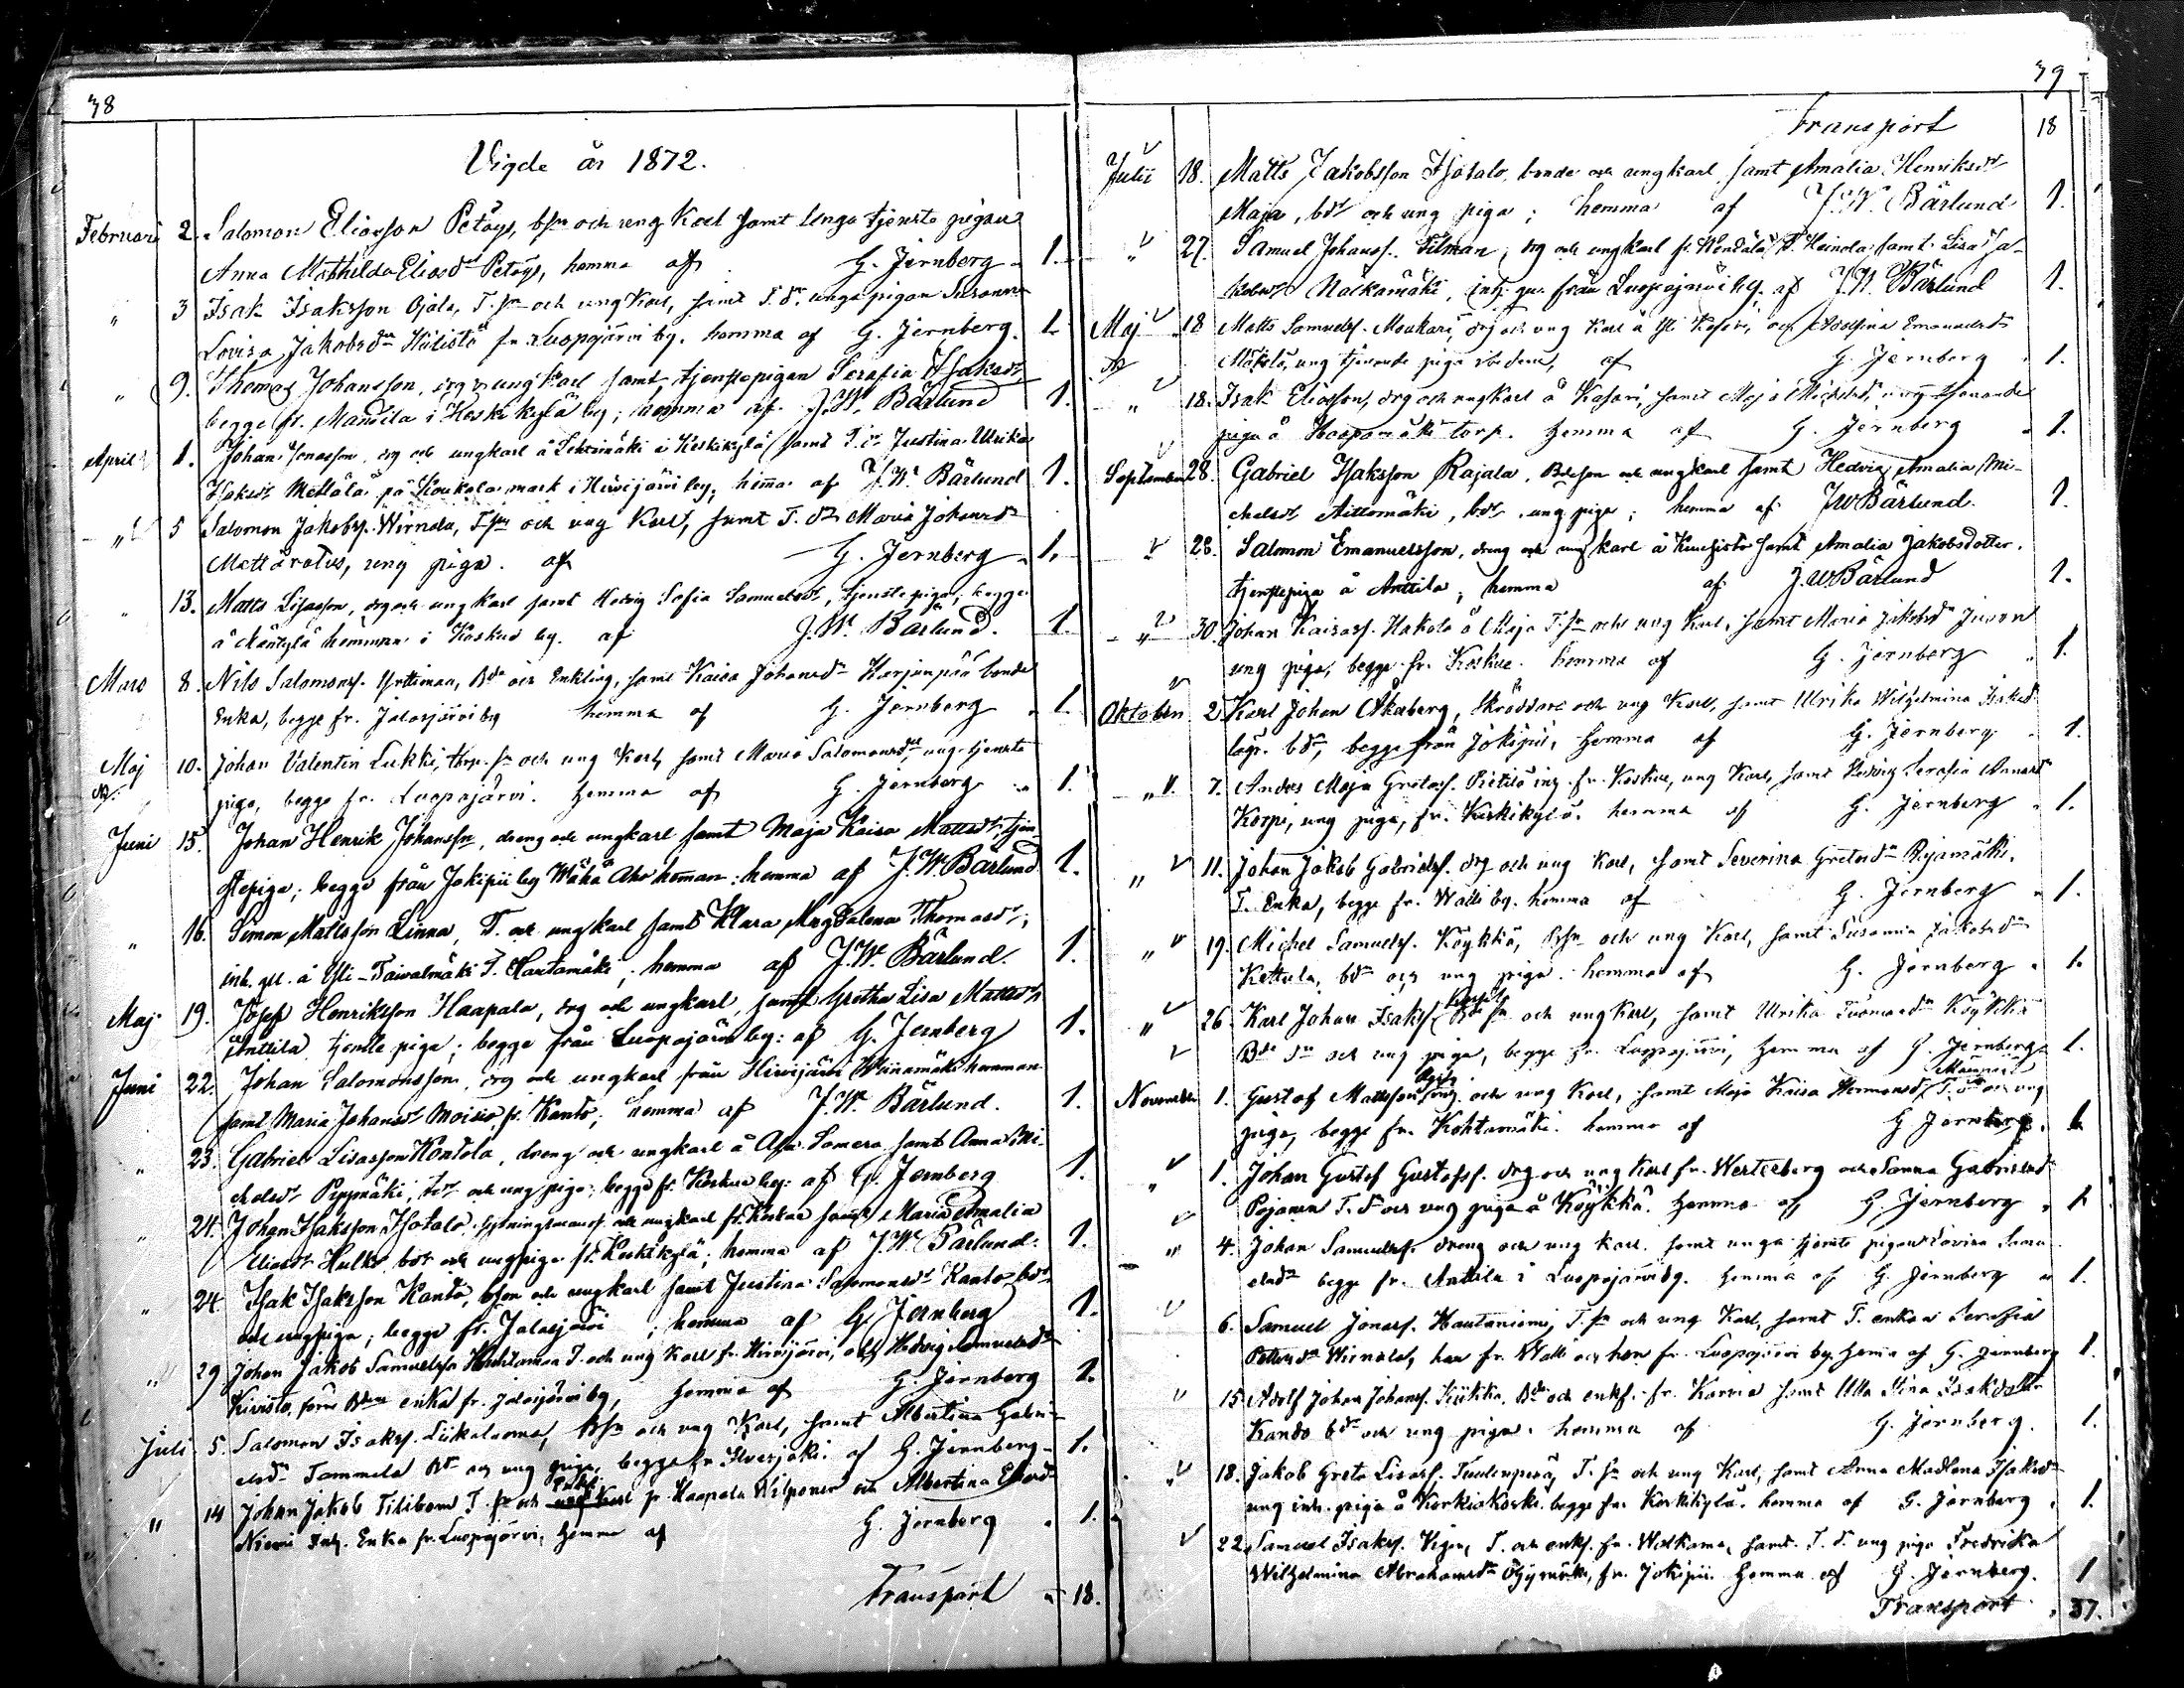 38
Vigde år 1872.
Februari 2. Salomon Eliasson Petäys, bsn och ung Karl samt unga tjenste pigan
Anna Mathilda Eliasdr Petäys, hemma af G. Jernberg 1.
" 3 Isak Isaksson Ojala, T. sn och ung Karl, samt T. dr unga pigan Susanna
Lovisa Jakobsdr Hilistö fr. Luopajärvi by. hemma af G. Jernberg. 1.
" 9. Thomas Johansson, drg o ungkarl samt tjenstepigan Serafia Isaksdr
begge fr. Mantila i Keskikylä by; hemma af J.W. Bärlund 1.
April 1. Johan Jonasson, drg och ungkarl å Lehtimäki i Keskikylä samt T. dr Justina Ulrika
Isaksdr Mettälä på Koukola mark i Hirvijärvi by; hemma af J.W. Bärlund 1.
" 5 Salomon Jakobss. Wirnala, T. sn och ung Karl, samt T. dr Maria Johansdr
ung piga. af G. Jernberg 1.
" 13. Matts Lisasson, drg och ungkarl samt Hedvig Sofia Samuelsdr, tjenstepiga, begge
å Mäntylä hemman i Koskue by. af J.W. Bärlund. 1.
Mars 8. Nils Salomonss. Yrttimaa, Bde och Enkling, samt Kaisa Johansdr Harjunpää bonde
Enka, begge fr. Jalasjärvi by hemma af G. Jernberg 1.
Maj 10. Johan Valentin Lukki, thrp. sn och ung Karl, samt Maria Salomonsdr, unga tjenste
piga, begge fr. Luopajärvi. Hemma af G. Jernberg 1.
Juni 15. Johan Henrik Johansson, dreng och ungkarl samt Maja Kaisa Mattsdr, tjen-
stepiga; begge från Jokipii by Wähä Aho heman: hemma af J.W. Bärlund 1.
" 16. Simon Mattsson Linna, T. och ungkarl samt Klara Magdalena Thomasdr,
inh. gel. å Yli-Taivalmäki T. Hautamäki; hemma af J.W. Bärlund. 1.
Maj 19. Josef Henriksson Haapala, drg och ungkarl, samt Gretha Lisa Mattsdr
Anttila tjenste piga; begge från Luopajärvi by: af G. Jernberg 1.
Juni 22. Johan Salomonsson, drg och ungkarl från Hirvijärvi Wiinamäki hemman
samt Maria Johansdr Moisio fr. Kanto; hemma af J.W. Bärlund. 1.
" 23. Gabriel Lisasson Kontola, dreng och ungkarl å Ala-Somera samt Anna Mi-
chelsdr Peppmäki, tdr och ung piga; begge fr. Koskue by: af G. Jernberg 1.
" 24. Johan Isaksson Isotalo, och ungkarl fr. Koskue samt Maria Amalia
Eliasdr Hulko, bdr och ungpiga fr. Keskikylä; hemma af J.W. Bärlund. 1.
" 24. Isak Isaksson Kanto, bson och ungkarl samt Justina Salomonsdr Kanto, bdr
och ungpiga; begge fr. Jalasjärvi; hemma af G. Jernberg 1.
" 29. Johan Jakob Samuelss Huhtamaa T. och ung Karl fr. Hirvijärvi, och Hedvig Samuelsdr
Kivistö, förre Bdens enka fr. Jalasjärvi by, hemma af G. Jernberg 1.
Juli 5. Salomon Isakss. Liikaluoma, bsn och ung Karl, samt Albertina Gabri-
elsdr Tammela Bdr och ung piga, begge fr. Ilvesjoki af G. Jernberg 1.
" 14 Johan Jakob Filibom T. sn och Enkl. fr. Haapala Kilponen och Albertina Eliasdr
Niemi Inh. Enka fr. Luopajärvi, hemma af G. Jernberg 1.
Transport 18.
39
Transport 18
Julii 18. Matts Jakobsson Isotalo, bonde och ungkarl samt Amalia Henriksdr
Maja, bdr och ung piga; hemma af J.W. Bärlund 1.
" 27. Samuel Johanss. Filman, drg och ungkarl fr. samt Lisa Ja-
kobsdr Nälkämäki, inh. gu. från Luopajärvi by. af J.W. Bärlund 1.
Maj 18 Matts Samuelss. Moukari, drg och ung Karl å Yli Kasari, och Adolfina Emanuelsdr
Mäkelä, ung tjenande piga ibidem, af G. Jernberg 1.
" 18. Isak Eliasson, drg och ungkarl å Kasari, samt Maja Michelsdr, ung tjenande
piga å Haapamäki torp. Hemma af G. Jernberg 1.
September 28. Gabriel Isaksson Rajala, Bdeson och ungkarl samt Hedvig Amalia Mi-
chelsdr Aittomäki, bdr, ung piga; hemma af JWBärlund. 1.
28. Salomon Emanuelsson, dreng och ungkarl å samt Amalia Jakobsdotter,
tjenstepiga å Anttila; hemma af J.WBärlund 1.
" 30. Johan Kaisass. Hakola å Maja T. sn och ung Karl, samt Maria Jakobsdr
ung piga, begge fr. Koskue. hemma af G. Jernberg 1.
Oktober 2. Karl Johan Åkaberg, Skräddare och ung Karl, samt Ulrika Wilhelmina Isaksdr
bdr, begge från Jokipii, Hemma af G. Jernberg 1.
" 7. Anders Maja Gretass. Pietilä inh. fr. Koskue, ung Karl, samt Hedvig Serafia Annasdr
Korpi, ung piga, fr. Keskikylä. hemma af G. Jernberg 1.
" 11. Johan Jakob Gabrielss. drg och ung Karl, samt Severina Gretasdr Rajamäki,
T. Enka, begge fr. Walli by. hemma af G. Jernberg 1.
" 19. Michel Samuelss. Köykkä, Bsn och ung Karl, samt Susanna Jakobsdr
Kettula, bdr och ung piga. hemma af G. Jernberg 1.
" 26. Karl Johan Isakss. Bde sn och ungkarl, samt Ulrika Tuomasdr Köykkä
Bde dr och ung piga, begge fr. Luopajärvi, Hemma af G. Jernberg 1.
November 1. Gustaf Mattsson inh. och ung Karl, samt Maja Kaisa Hermansdr T. dr och ung
piga, begge fr. Kohtamäki. hemma af G Jernberg. 1.
" 1. Johan Gustaf Gustafss. drg och ung Karl fr. Werteeberg och Sanna Gabrielsdr
Pojanen T. d och ung piga å Köykkä. Hemma af G. Jernberg 1
" 4. Johan Samuelss. dreng och ung karl. samt unga tjenste pigan Lovisa Samu
elsdr begge fr. Anttila i Luopajärvi by. hemma af G. Jernberg 1.
6. Samuel Jonass. Hautaniemi, T. sn och ung Karl, samt T. enkan Serafia
Pettersdr Wirnala, han fr. Walli och hon fr. Luopajärvi by. Hemma af G. Jernberg 1.
" 15. Adolf Johan Johanss. Kiikka, Bde och enkl. fr. Korvia samt Ulla Stina Isakdottr
Kando bdr och ung piga. hemma af G. Jernberg. 1.
" 18. Jakob Greta Lisass. Tuulenpesä, T. sn och ung Karl, samt Anna Madlena Isaksdr
ung inh. piga å Korkiakoski. begge fr. Keskikylä. hemma af G. Jernberg 1.
22. Samuel Isakss. T. och enkl. fr. samt T. d. ung piga Fredrika
Wilhelmina Abrahamsdr fr. Jokipii. Hemma af G. Jernberg. 1
Transport 37.